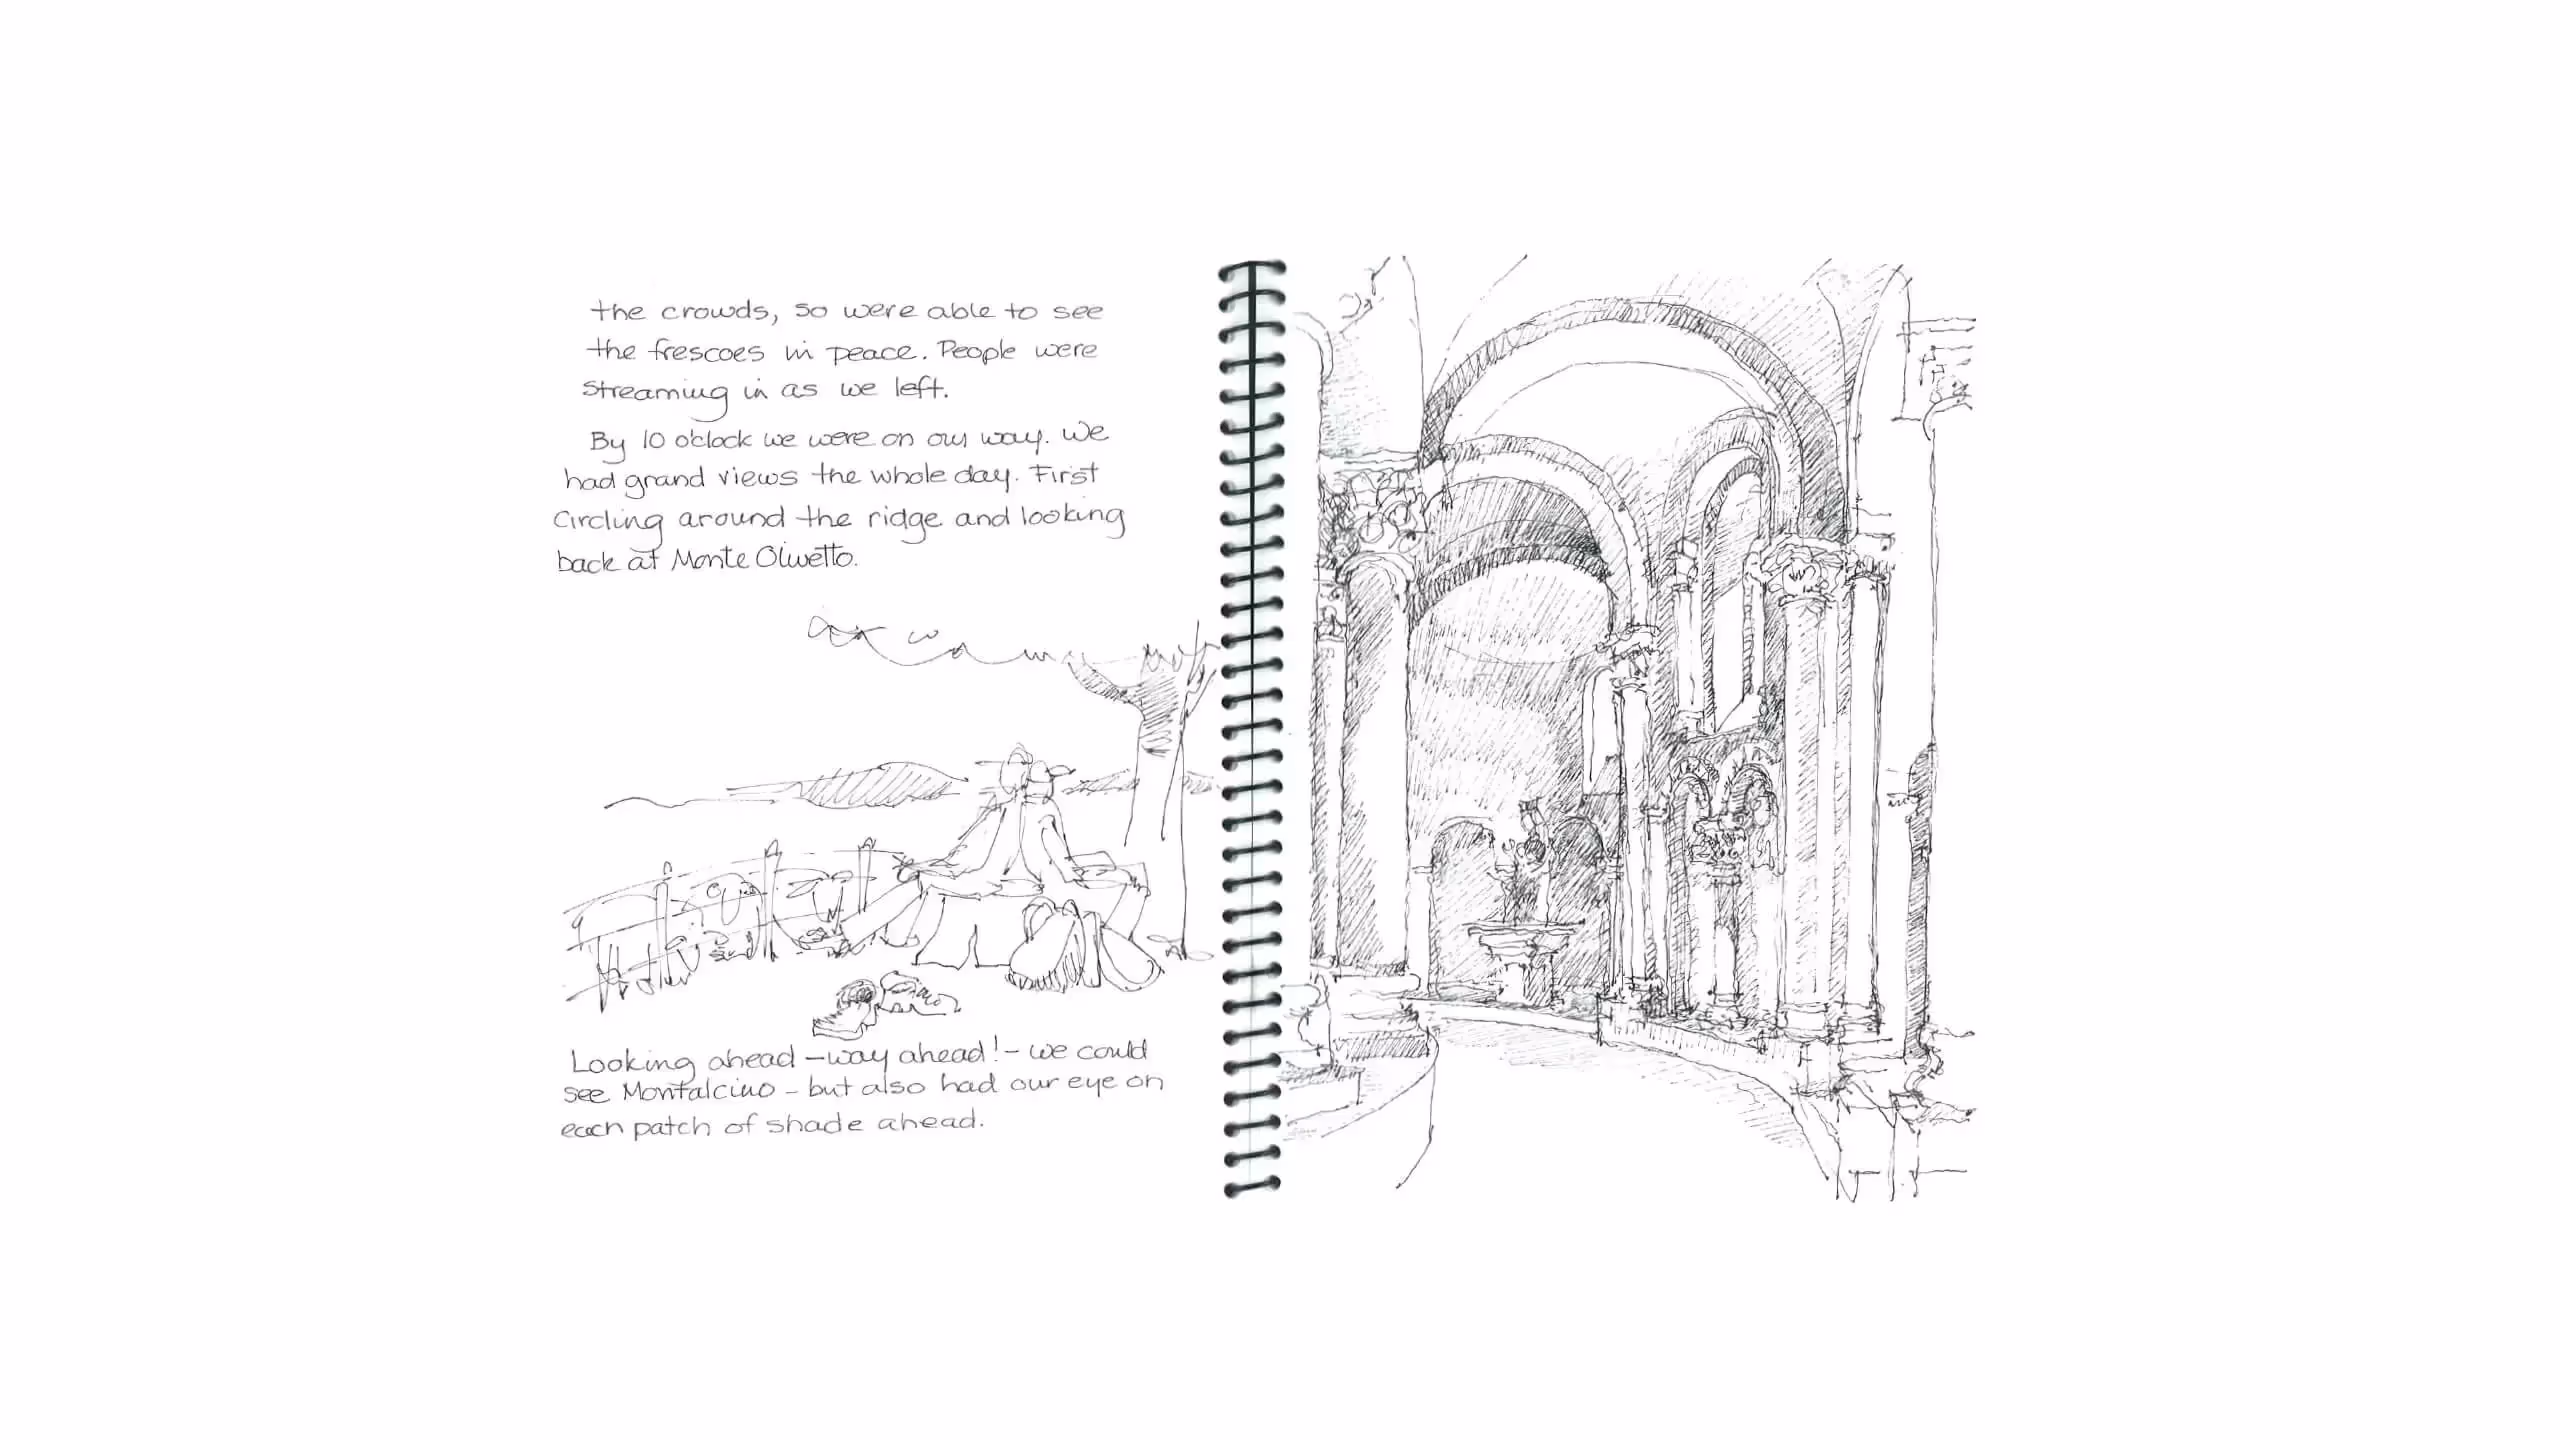 the crowds, so were able to see
the frescoes in peace. People were
streaming in as we left.
By 10 o'clock we were on our way. We
had grand views the whole day. First
Circling around the ridge and looking
back at Monte Olivetto.
Looking ahead - way ahead! - we could
see Montalcino - but also had our eye on
each patch of shade ahead.